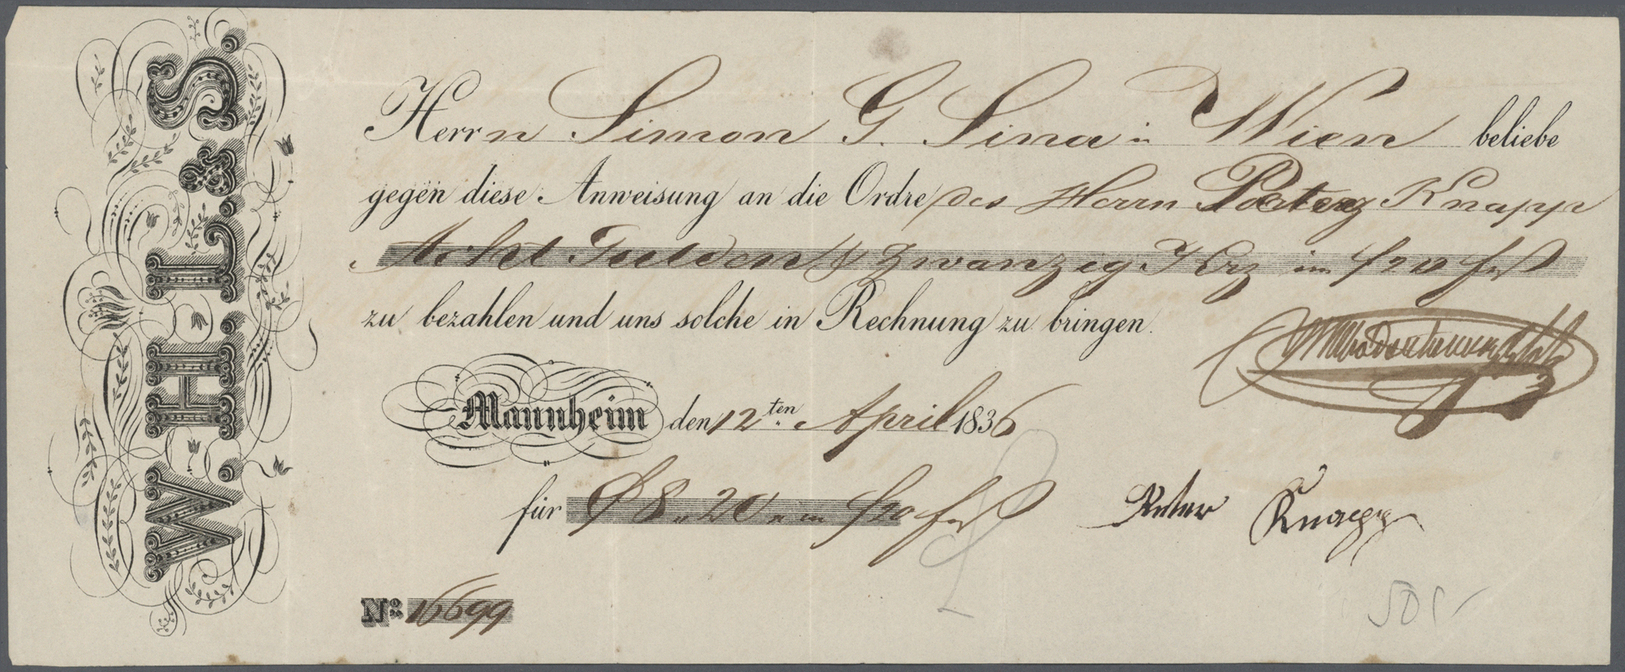 W. H. L. & S.
Herrn Simon G. Sina in Wien beliebe
gegen diese Anweisung an die Ordre des Herrn Peter Knapp
Acht Gulden & zwanzig Krz im f 20 fuß
zu bezahlen und uns solche in Rechnung zu bringen.
Mannheim den 12ten April 1836
für f 8 " 20 " im f 20 fuß
Peter Knapp
No. 16699